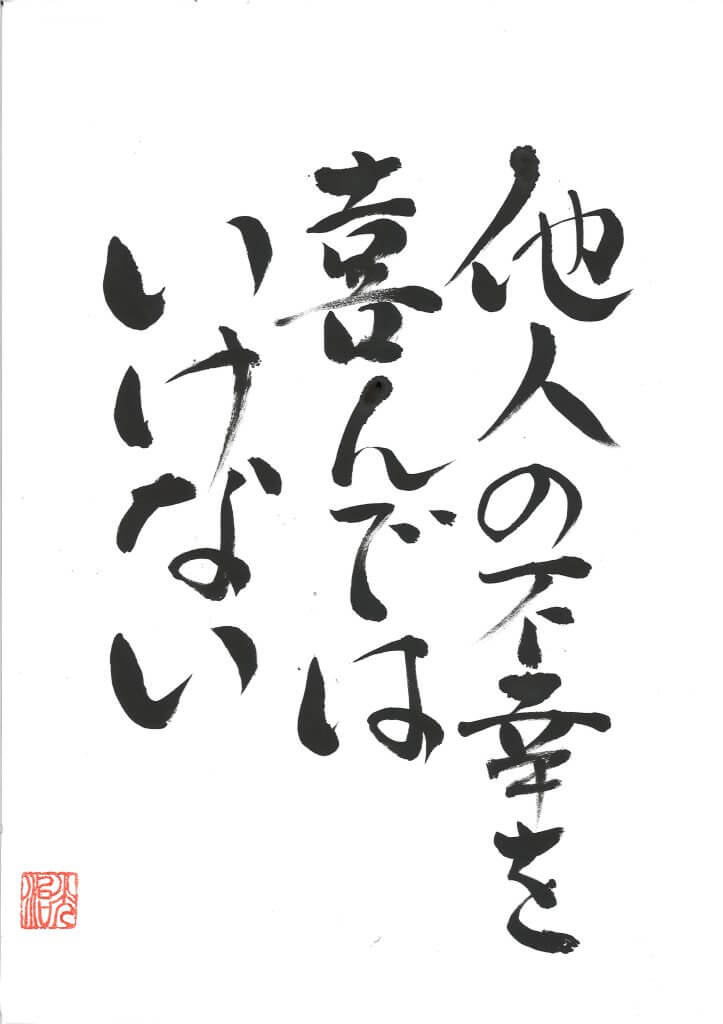 他人の不幸を
喜んでは
いけない